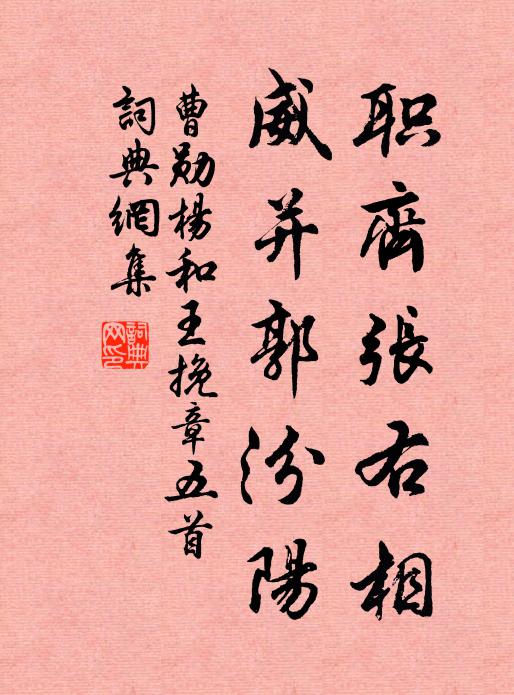 职齊張右相
威并郭汾陽
曹勋楊和王挽章五首
詞典網集
詞典网印